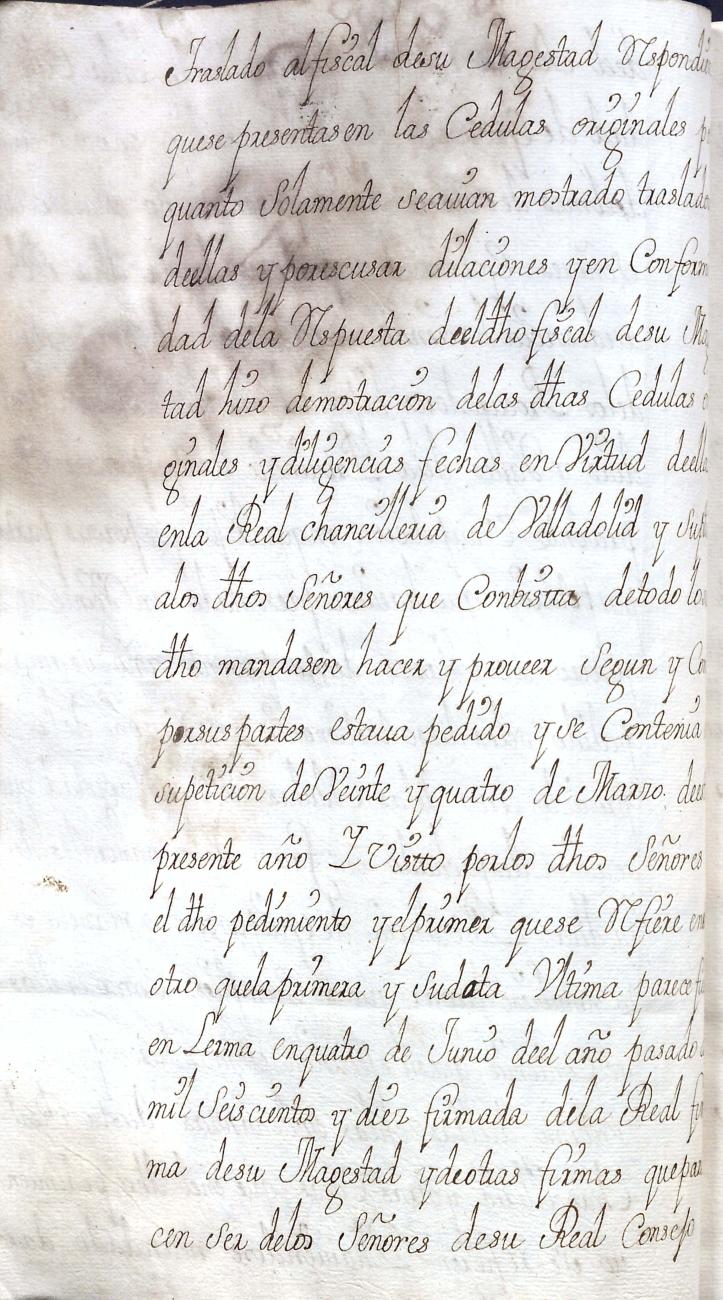 Traslado alfiscal desu Magestad Respondió
quese presentasen las Cedulas originales p
quanto Solamente seauian mostrado traslado
deellas y porescusar dilaciones yen Conform
dad dela Respuesta deeldho fiscal desu Mag
tad hizo demostración delas dhas Cedulas o
ginales ydiligencias fechas en Virtud deella
enla Real chancilleria de Valladolid y Supl
alos dhos Señores que Conbistta detodo lo
dho mandasen hacer y proueer Segun y Co
porsuspartes estaua pedido yse Contenia
supetición deVeinte yquatro de Marzo dees
presente año Y Vistto porlos dhos Señores
el dho pedimiento yelprimer quese Refiere en
otro quelaprimera y sudata Ultima parece f
en Lerma enquatro de Junio deel año pasado
mil Seiscientos y diez firmada dela Real fir
ma desu Magestad ydeotras firmas quepare
cen Ser delos Señores desu Real Consejo